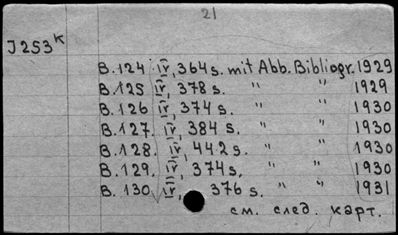 21
J253ᴷ
B.124 IV, 364 s. mit Abb. Bibliogr. 1929
B.125 IV, 378 s. " " 1929
B.126 IV, 374 s. " " 1930
B.127. IV, 384 s. " " 1930
B.128. IV, 442 s. " " 1930
B.129. IV, 374 s. " " 1930
B.130. IV, 376 s. " " 1931
см. след. карт.